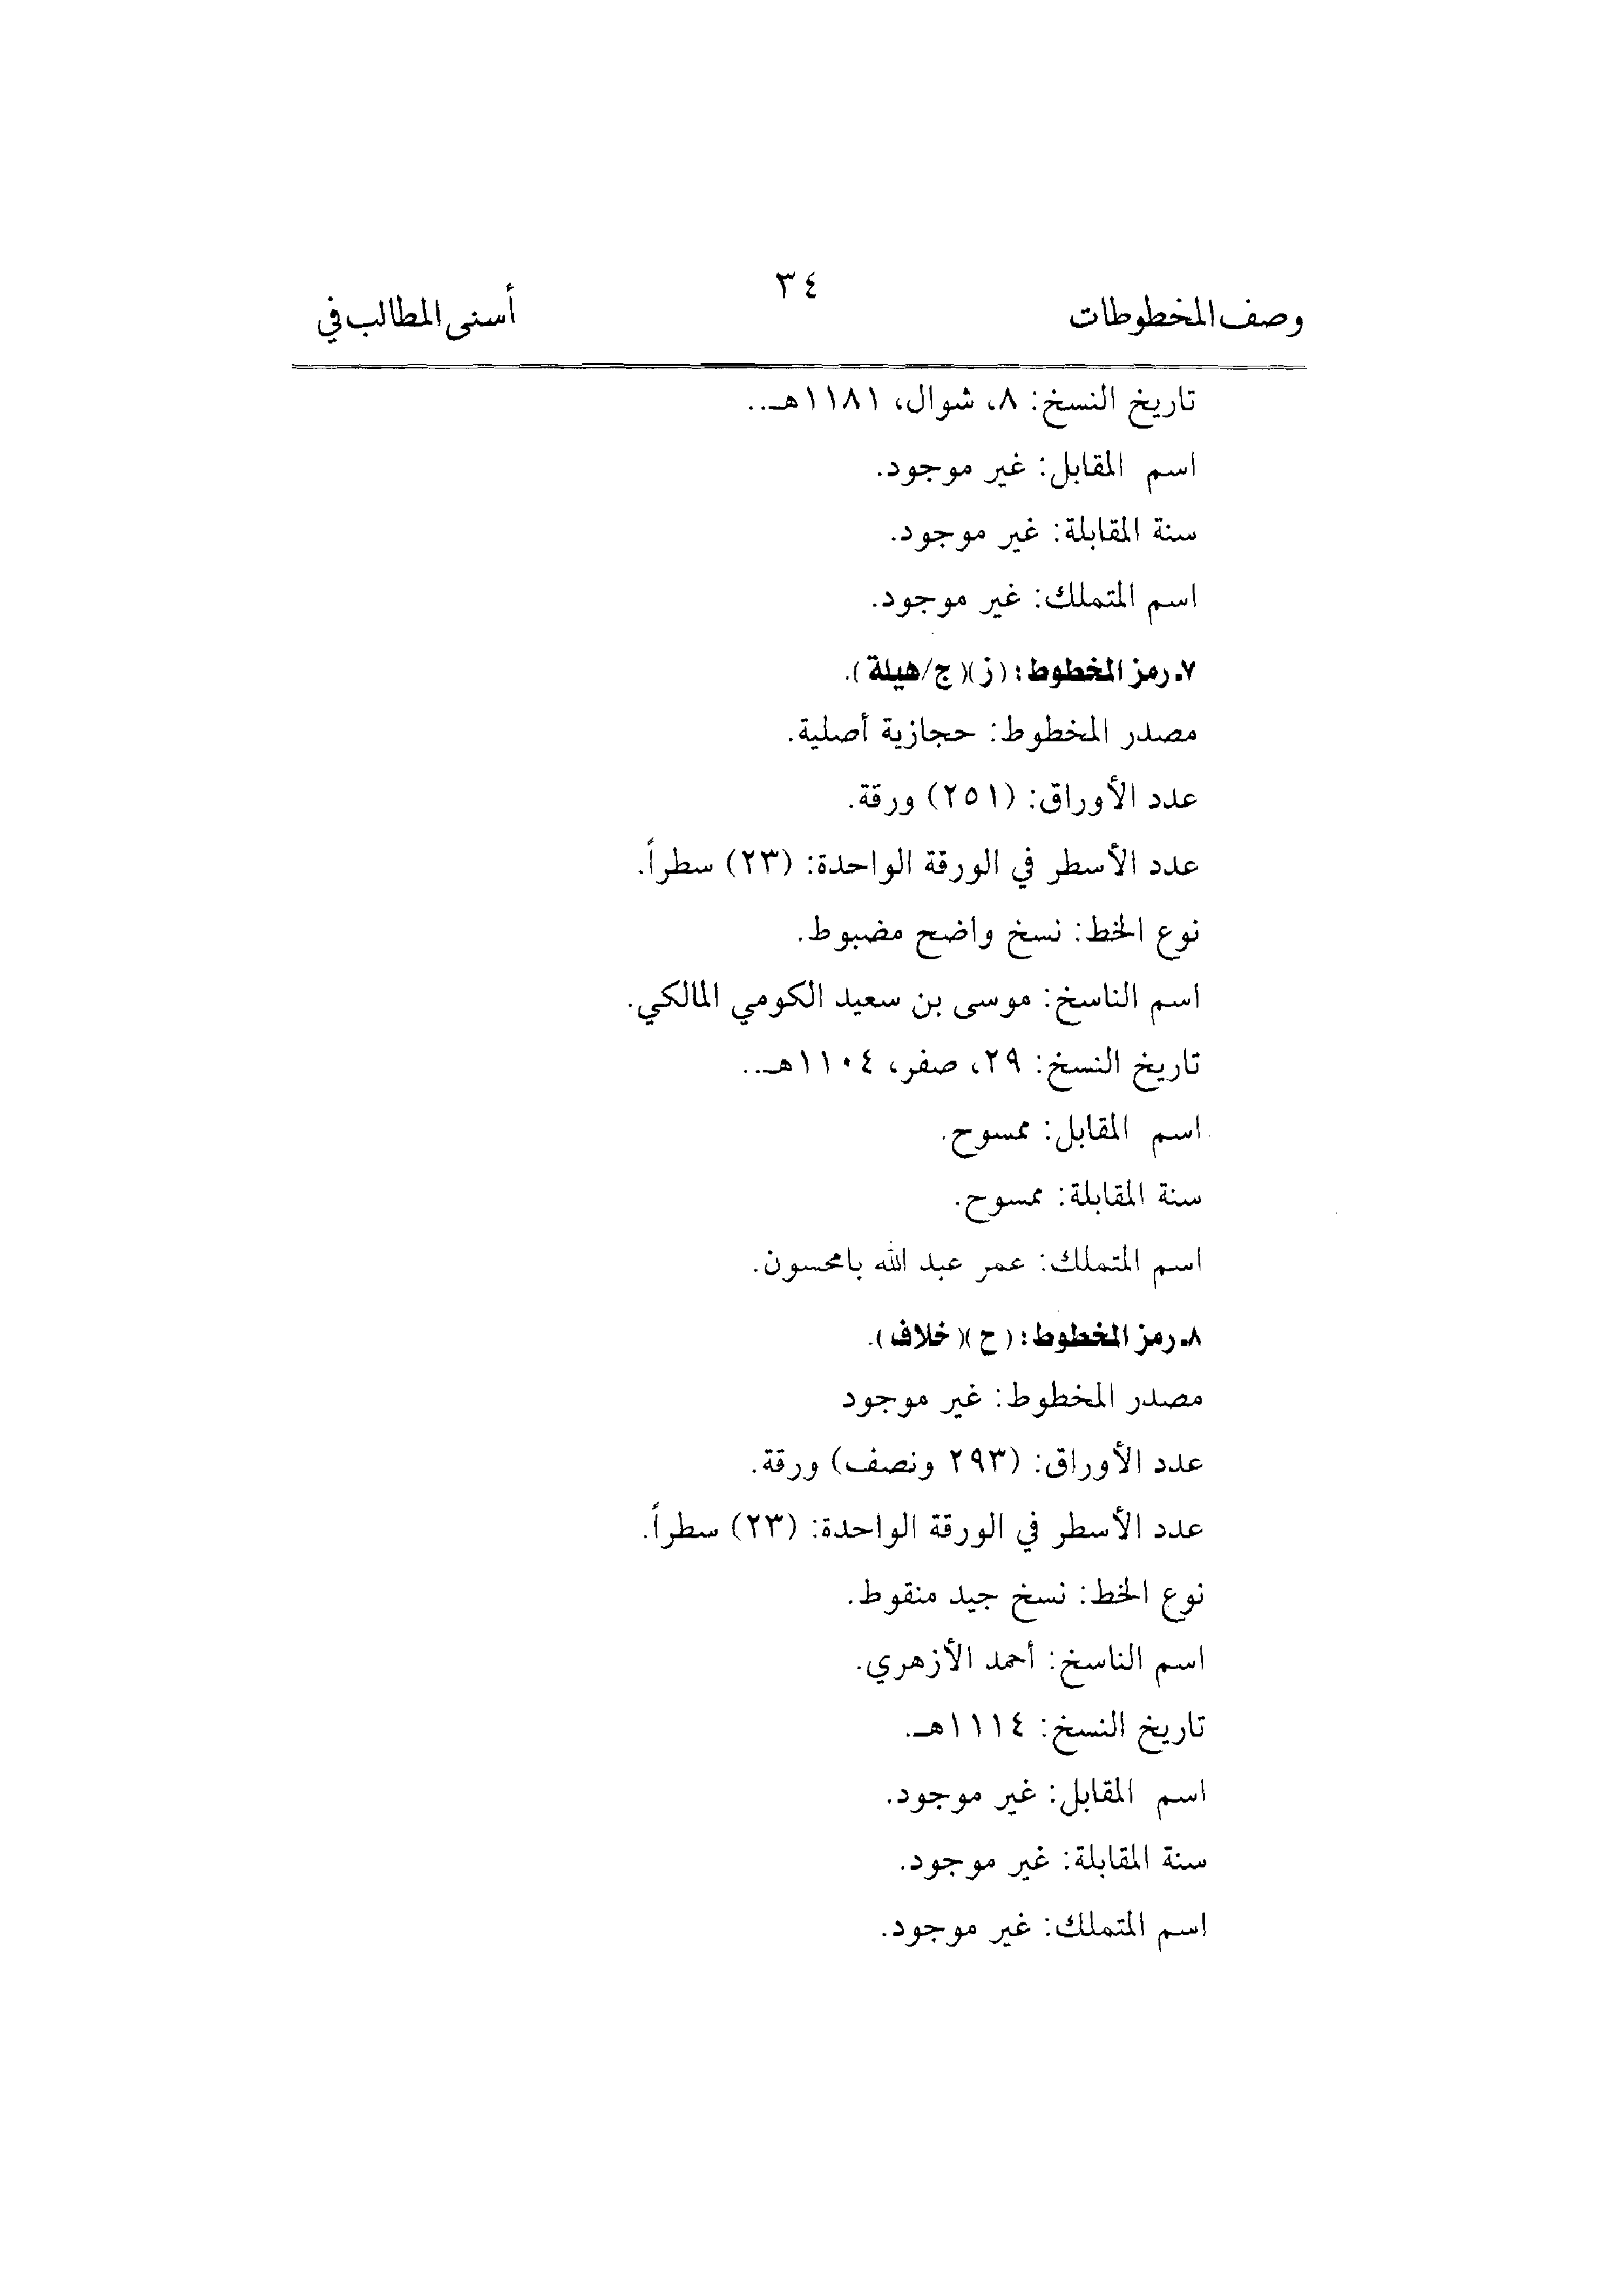 وصف المخطوطات ٣٤ أسنى المطالب في
تاريخ النسخ: ٨، شوال، ١١٨١هـ..
اسم المقابل: غير موجود.
سنة المقابلة: غير موجود.
اسم المتملك: غير موجود.
٧ـ رمز المخطوط: (ز)(ج/هيلة).
مصدر المخطوط: حجازية أصلية.
عدد الأوراق: (٢٥١) ورقة.
عدد الأسطر في الورقة الواحدة: (٢٣) سطراً.
نوع الخط: نسخ واضح مضبوط.
اسم الناسخ: موسى بن سعيد الكومي المالكي.
تاريخ النسخ: ٢٩، صفر، ١١٠٤هـ..
اسم المقابل: ممسوح.
سنة المقابلة: ممسوح.
اسم المتملك: عمر عبد الله بامحسون.
٨ـ رمز المخطوط: (ح)(خلاف).
مصدر المخطوط: غير موجود
عدد الأوراق: (٢٩٣ ونصف) ورقة.
عدد الأسطر في الورقة الواحدة: (٢٣) سطراً.
نوع الخط: نسخ جيد منقوط.
اسم الناسخ: أحمد الأزهري.
تاريخ النسخ: ١١١٤هـ.
اسم المقابل: غير موجود.
سنة المقابلة: غير موجود.
اسم المتملك: غير موجود.